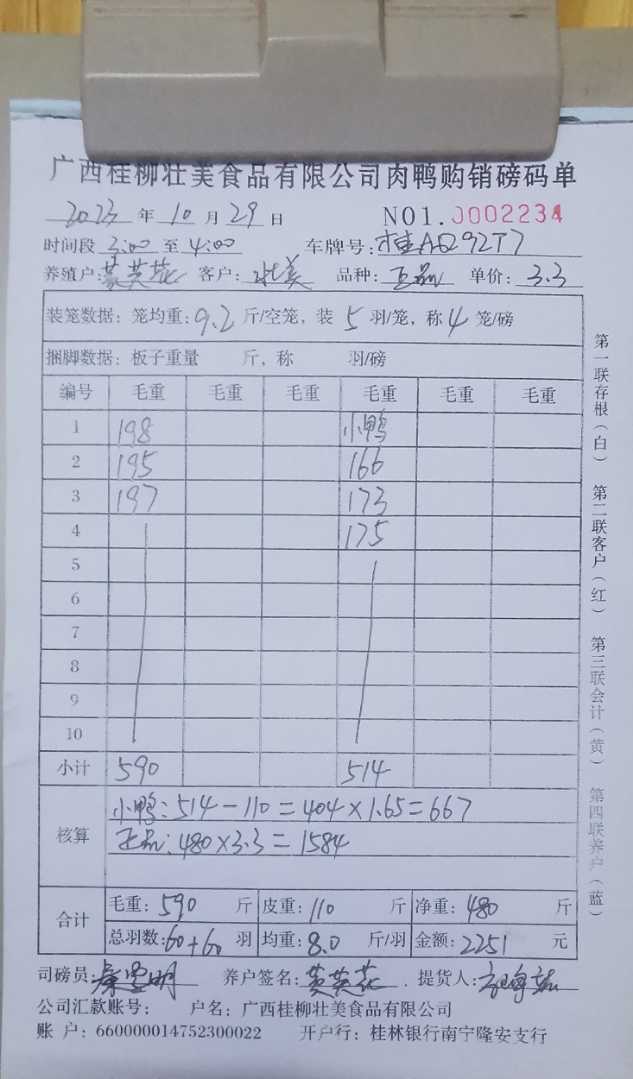 广西桂柳壮美食品有限公司肉鸭购销磅码单
2023 年 10 月 29 日 NO1. 0002234
时间段 2:00 至 4:00 车牌号: 桂AQ92T7
养殖户: 黄英花 客户: 壮美 品种: 正品 单价: 3.3
装笼数据: 笼均重: 9.2 斤/空笼, 装 5 羽/笼, 称 4 笼/磅
捆脚数据: 板子重量 斤, 称 羽/磅
编号 毛重 毛重 毛重 毛重 毛重 毛重
1 198 小鸭
2 195 166
3 197 173
4 175
5
6
7
8
9
10
小计 590 514
核算 小鸭: 514-110=404×1.65=667
正品: 480×3.3=1584
合计 毛重: 590 斤 皮重: 110 斤 净重: 480 斤
总羽数: 60+60 羽 均重: 8.0 斤/羽 金额: 2251 元
司磅员: 明 养户签名: 黄英花 提货人:
公司汇款账号: 户名: 广西桂柳壮美食品有限公司
账 户: 660000014752300022 开户行: 桂林银行南宁隆安支行
第一联存根(白) 第二联客户(红) 第三联会计(黄) 第四联养户(蓝)